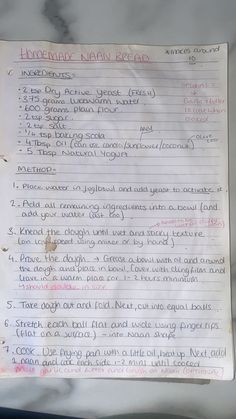 HOMEMADE NAAN BREAD
*makes around 10
INGREDIENTS:
• 2 tsp Dry Active Yeast (FRESH)
• 375 grams lukewarm water
• 600 grams plain flour
• 2 tsp sugar
• 2 tsp salt
• 1/4 tsp baking soda
• 4 Tbsp Oil (can use canola/sunflower/coconut)
• 5 Tbsp Natural Yogurt
Garlic Butter
cooked
METHOD:
1. Place water in jug/bowl and add yeast to activate it.
2. Add all remaining ingredients into a bowl (and add your water last too)
3. Knead the dough until wet and sticky texture
(on low speed using mixer or by hand)
4. Prove the dough → Grease a bowl with oil and around
the dough and place in bowl. Cover with clingfilm and
leave in a warm place for 1-2 hours minimum
* should double in size
5. Take dough out and fold. Next, cut into equal balls...
6. Stretch each ball flat and wide using finger tips
(flat on a surface) - into Naan shape
7. COOK. Use frying pan with a little oil, heat up. Next add
1 naan and cook each side 1-2 mins until cooked